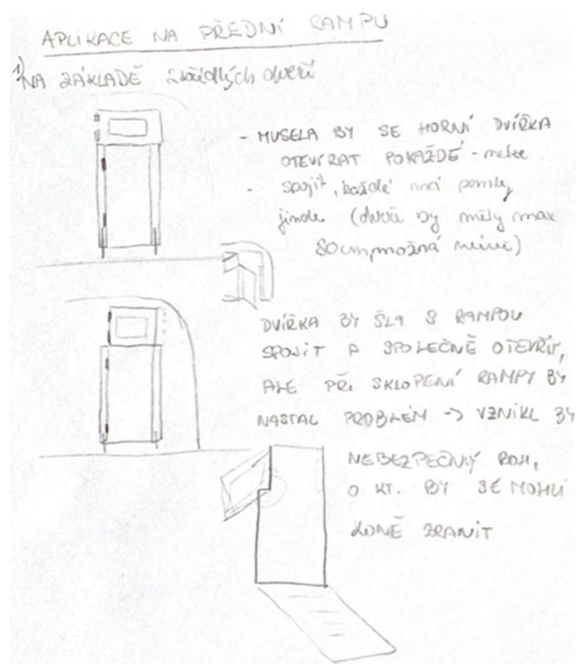 APLIKACE NA PŘEDNÍ RAMPU
1) NA ZÁKLADĚ 2křídlých dveří
- MUSELA BY SE HORNÍ DVÍŘKA
OTEVÍRAT POKAŽDÉ - nelze
- spojit, každé má panty
jinde (dveře by měly max
80cm, možná méně)
DVÍŘKA BY ŠLA S RAMPOU
SPOJIT A SPOLEČNĚ OTEVŘÍT,
ALE PŘI SKLOPENÍ RAMPY BY
NASTAL PROBLÉM -> VZNIKL BY
NEBEZPEČNÝ ROH,
O KT. BY SE MOHLI
KONĚ ZRANIT